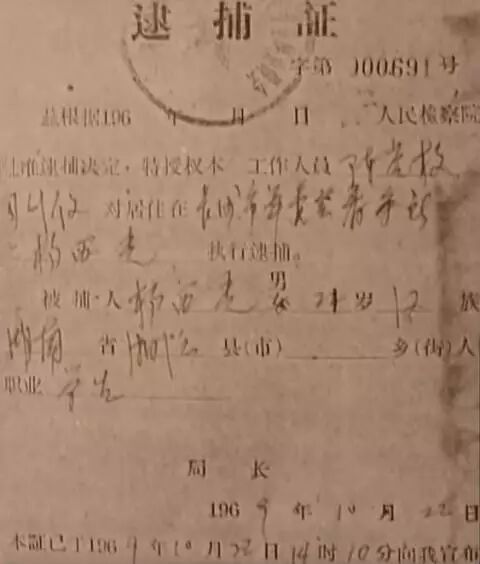 逮捕证
字第 000691号
兹根据196 年 月 日 人民检察院
批准逮捕决定，特授权本 工作人员
对居住在长沙市
杨西光 执行逮捕。
被捕人杨西光 男女 24岁 汉 族
湖南 省 湘江 县(市) 乡(街)人
职业 学生
局 长
1969年10月22日
本证已于1969年10月22日14时10分向我宣布